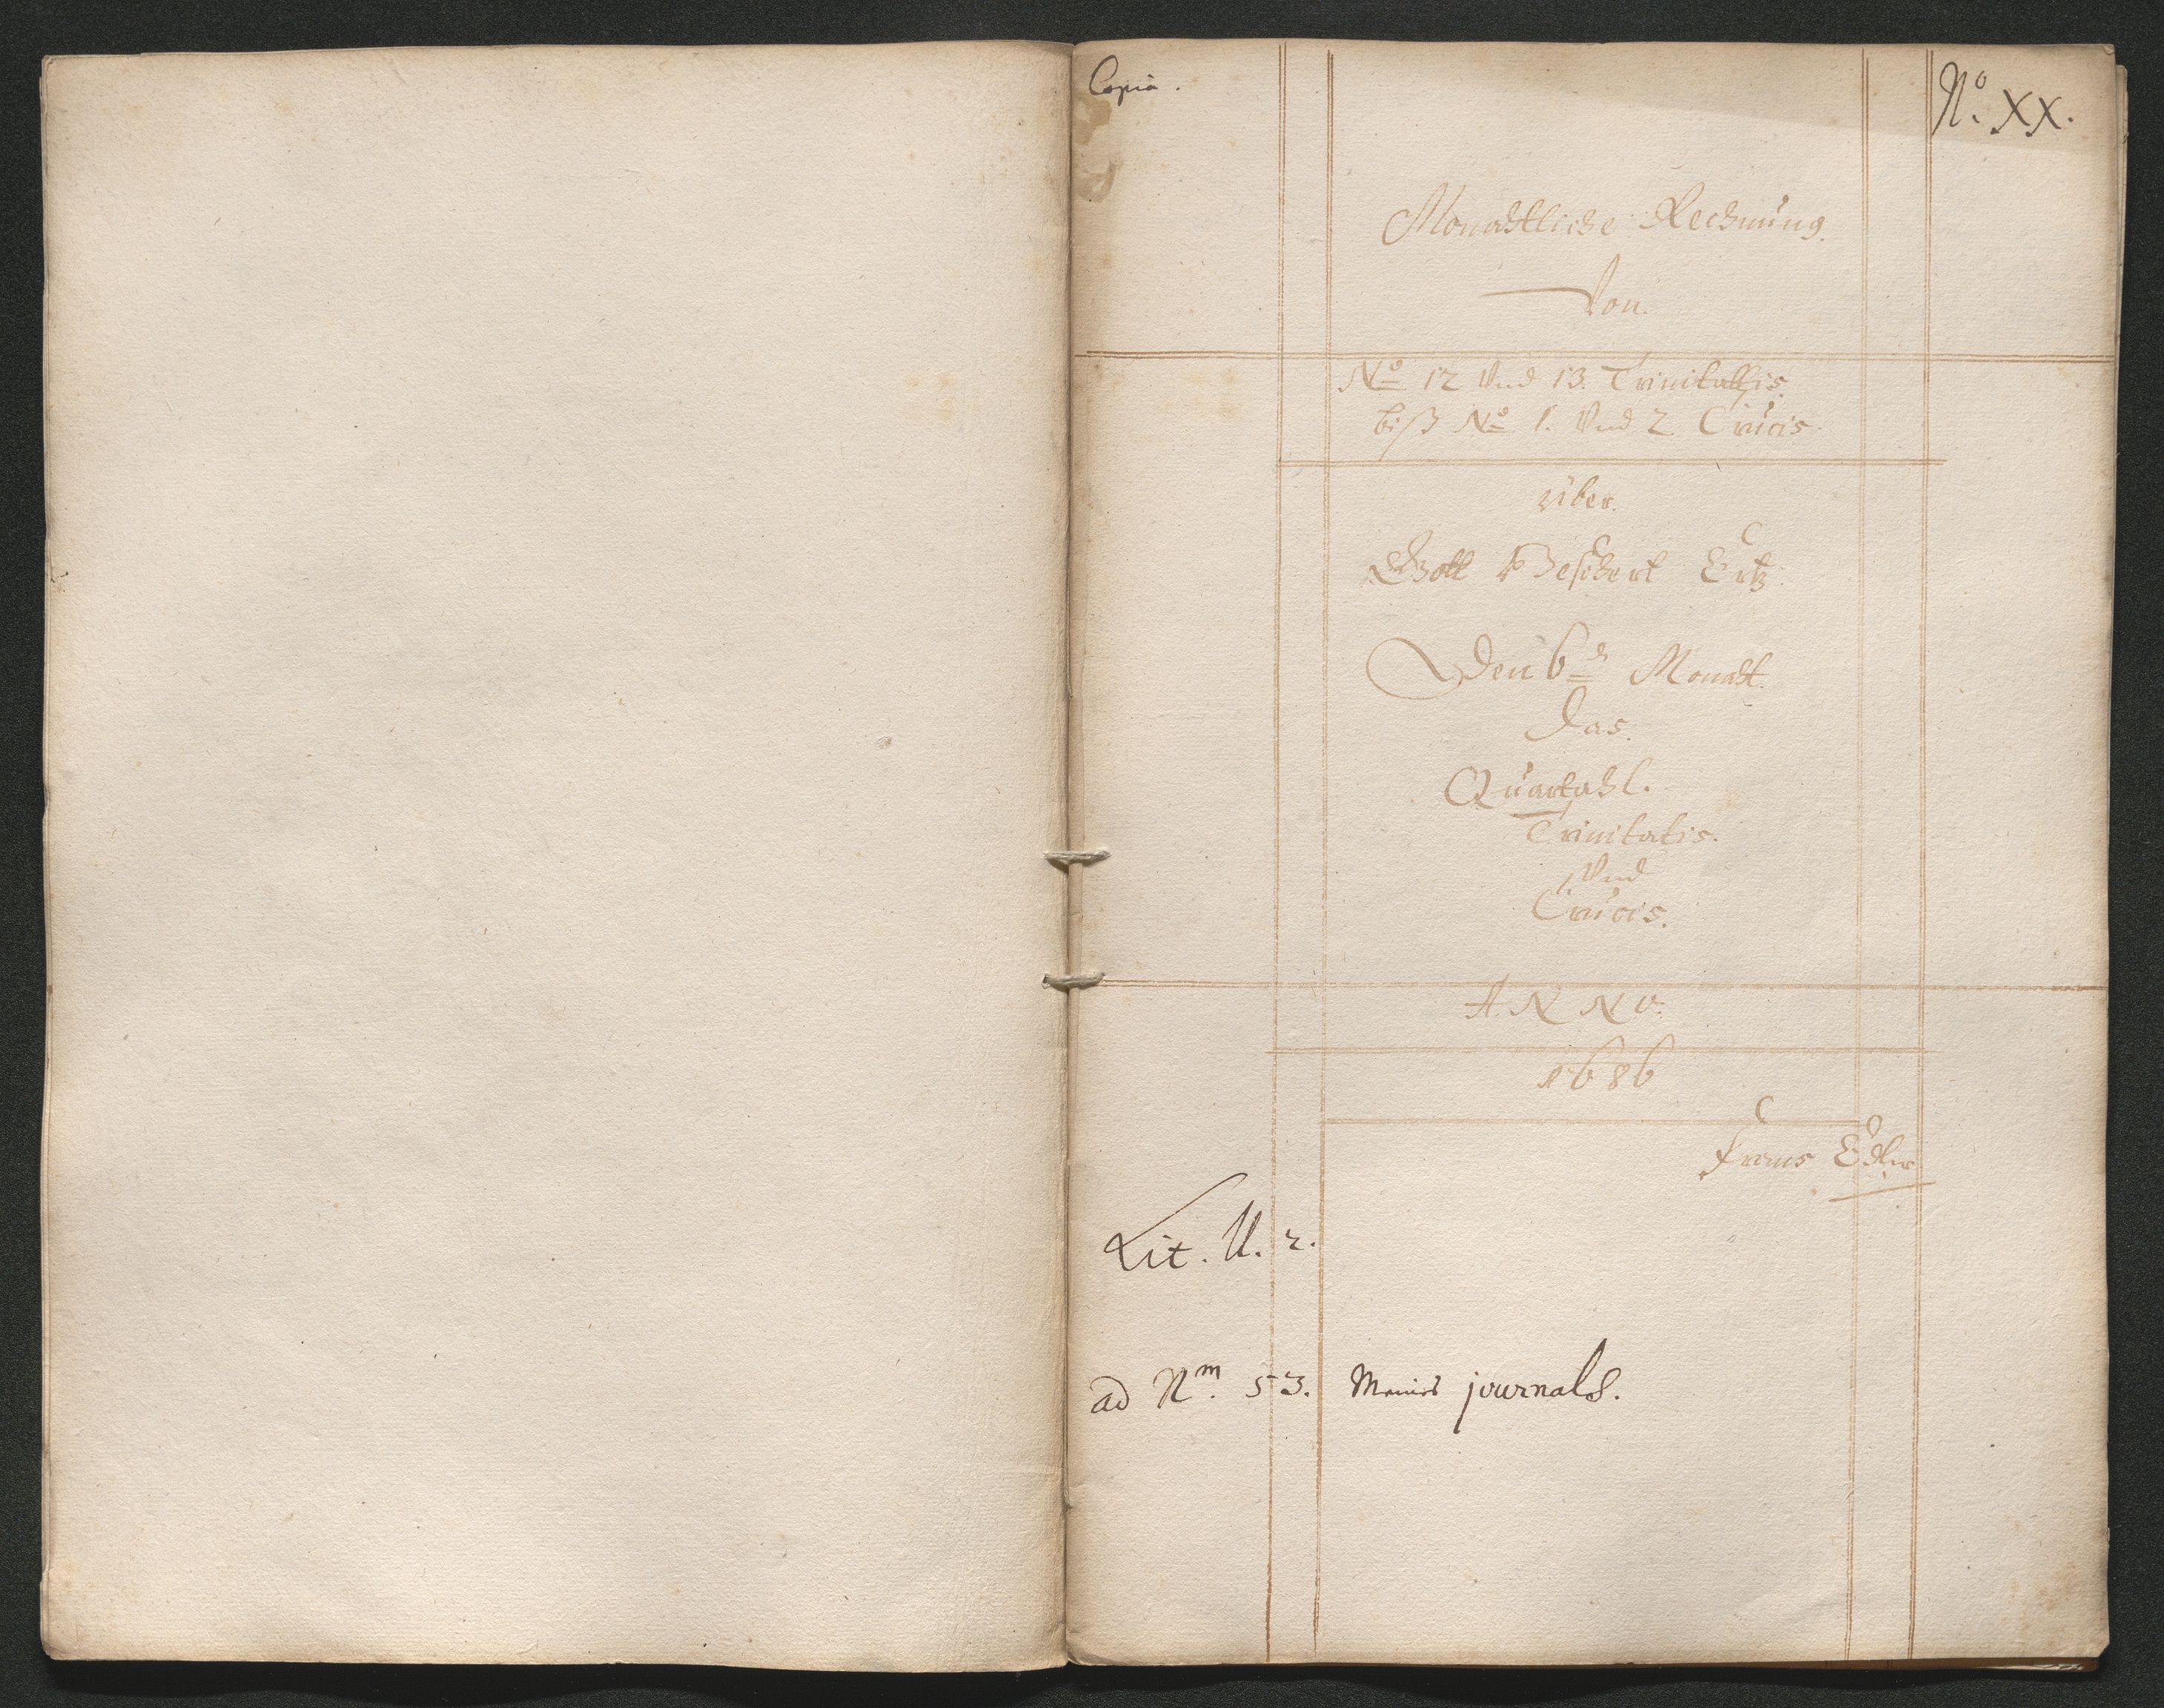 Copia.
No. XX.
Monahtliche Rechnung.
Von.
No 12 Vnd 13. Trinitattis
biß No 1. Vnd 2 Crucis.
über.
Gott Beschert Ertz
Den 6 Monaht.
Das.
Quartahl.
Trinitatis.
Vnd
Crucis.
ANNO.
1686
Lit. U. 2.
ad Nm. 53. Meines journals.